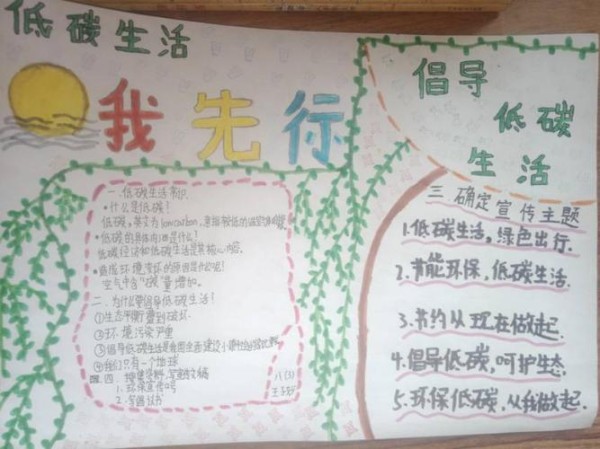 低碳生活
我先行
一.低碳生活常识
•什么是低碳?
低碳,英文为low carbon,意指较低的
•低碳的具体内涵是什么?
低碳经济和低碳生活是其核心内容。
空气中含"碳"量增加。
二.为什么要倡导低碳生活?
①生态平衡遭到破坏
②环境污染严重
③倡导低碳生活是我国全面建设小康社会的
④我们只有一个地球
四.
1.环保宣传口号
2.
倡导
低碳
生活
三 确定宣传主题
1.低碳生活,绿色出行.
2.节能环保,低碳生活.
3.节约从现在做起.
4.倡导低碳,呵护生态.
5.环保低碳,从我做起.